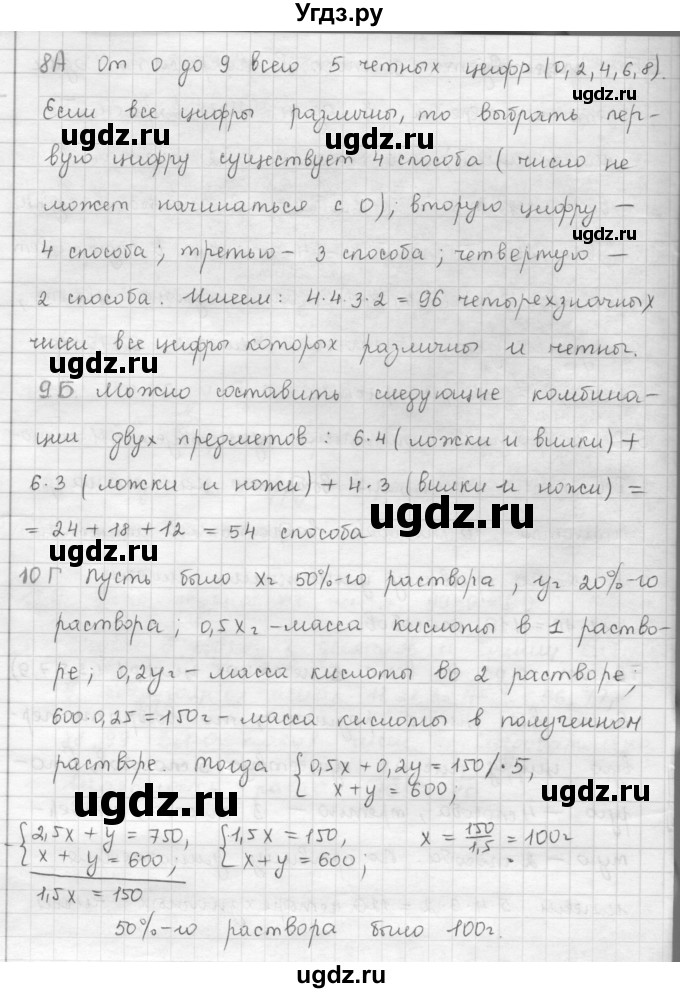 Угдз.ру
8А От 0 до 9 всего 5 четных цифр (0, 2, 4, 6, 8).
ugdz.ru
Если все цифры различны, то выбрать пер-
ugdz.ru
вую цифру существует 4 способа (число не
может начинаться с 0); вторую цифру –
ugdz.ru
4 способа; третью – 3 способа; четвертую –
2 способа. Имеем: 4·4·3·2 = 96 четырехзначных
чисел все цифры которых различны и четны.
ugdz.ru
9Б Можно составить следующие комбина-
ции двух предметов: 6·4 (ложки и вилки) +
6·3 (ложки и ножи) + 4·3 (вилки и ножи) =
ugdz.ru
= 24 + 18 + 12 = 54 способа
10Г Пусть было xг 50%-го раствора, yг 20%-го
раствора; 0,5xг – масса кислоты в 1 раство-
ре; 0,2yг – масса кислоты во 2 растворе;
600·0,25 = 150г – масса кислоты в полученном
растворе. Тогда { 0,5x + 0,2y = 150 /·5,
x + y = 600;
ugdz.ru
ugdz.ru
- { 2,5x + y = 750, { 1,5x = 150, x = 150/1,5 = 100г.
x + y = 600; x + y = 600;
1,5x = 150
50%-го раствора было 100г.
ugdz.ru